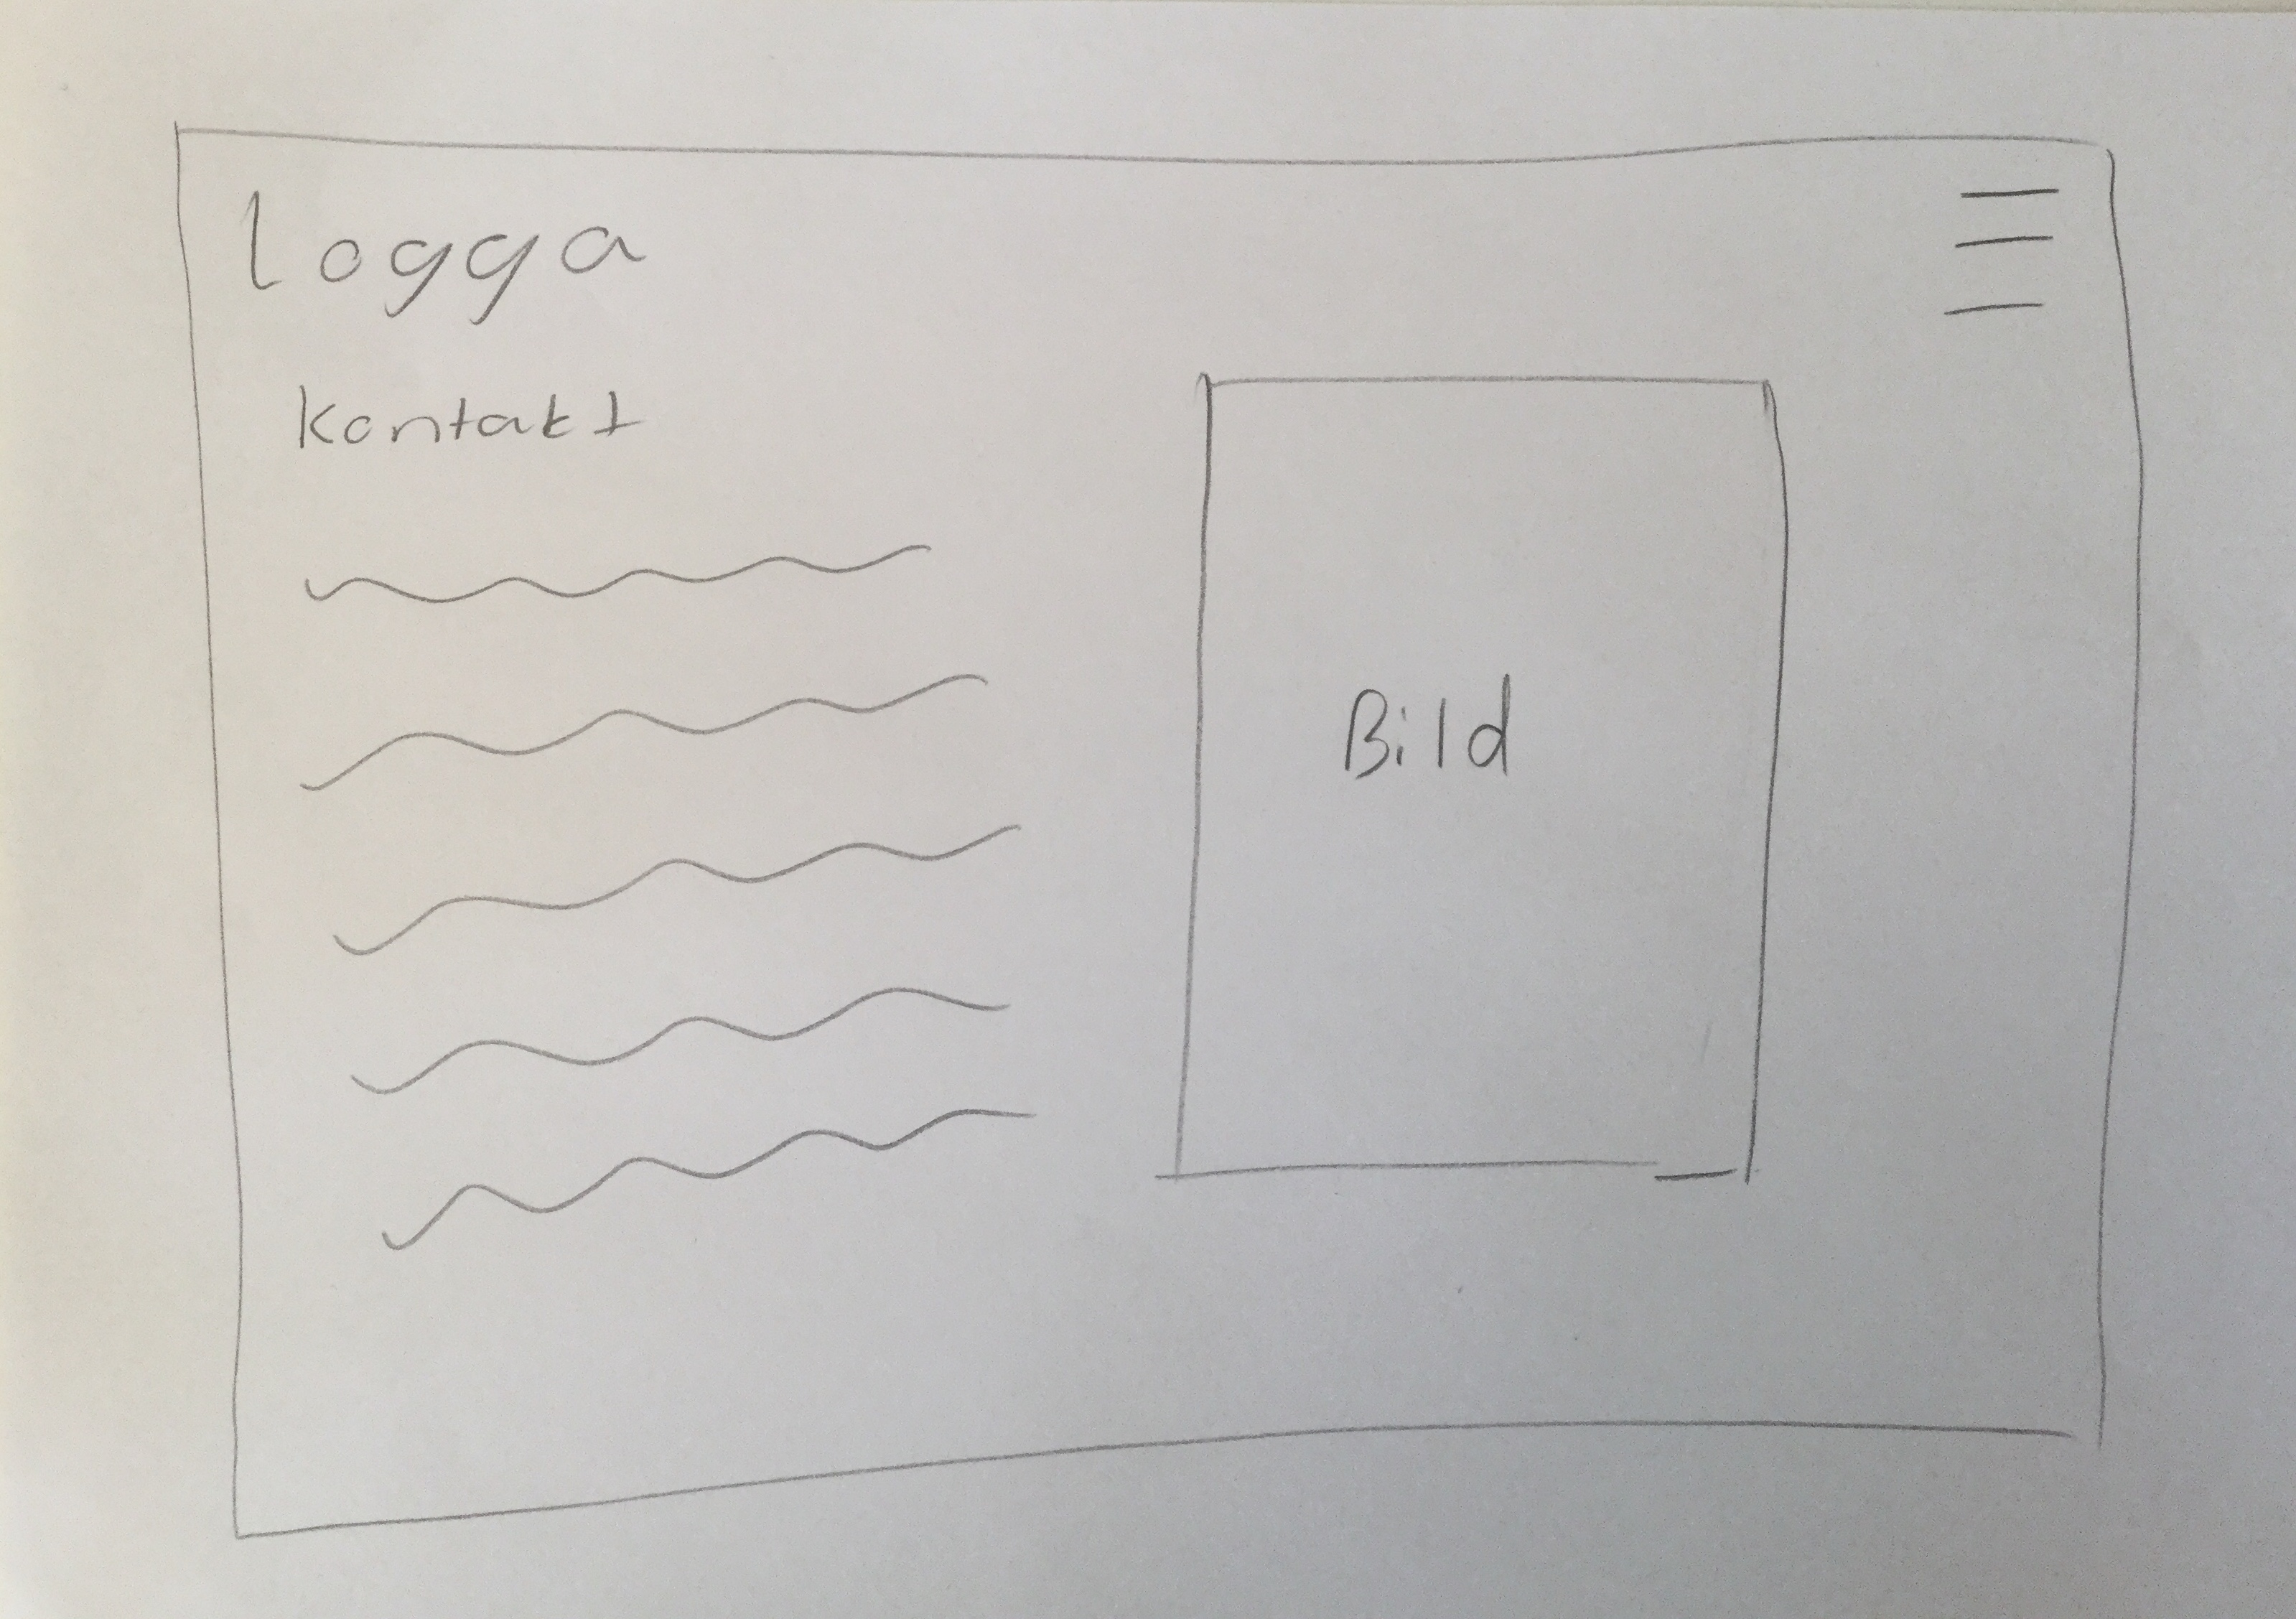 logga
kontakt
Bild